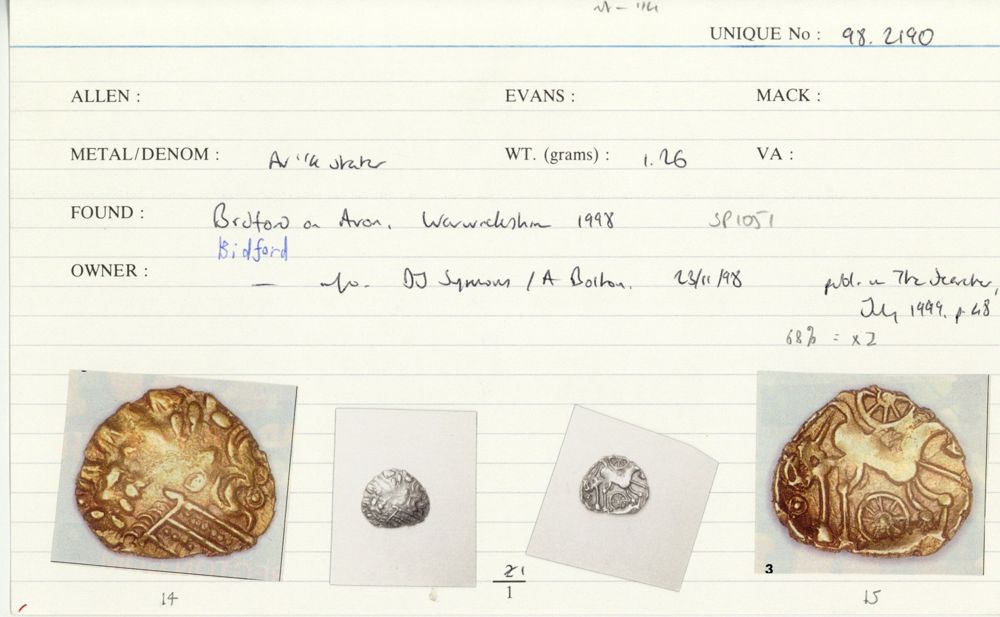 UNIQUE No : 98.2190
ALLEN : EVANS : MACK :
METAL/DENOM : WT. (grams) : 1.26 VA :
FOUND : Bidford on Avon, Warwickshire 1998 SP1051
Bidford
OWNER : — info. DJ Symons / A Bolton. 23/11/98 publ. in The Searcher,
July 1999. p 48
68% = x2
3
21
1
14 15